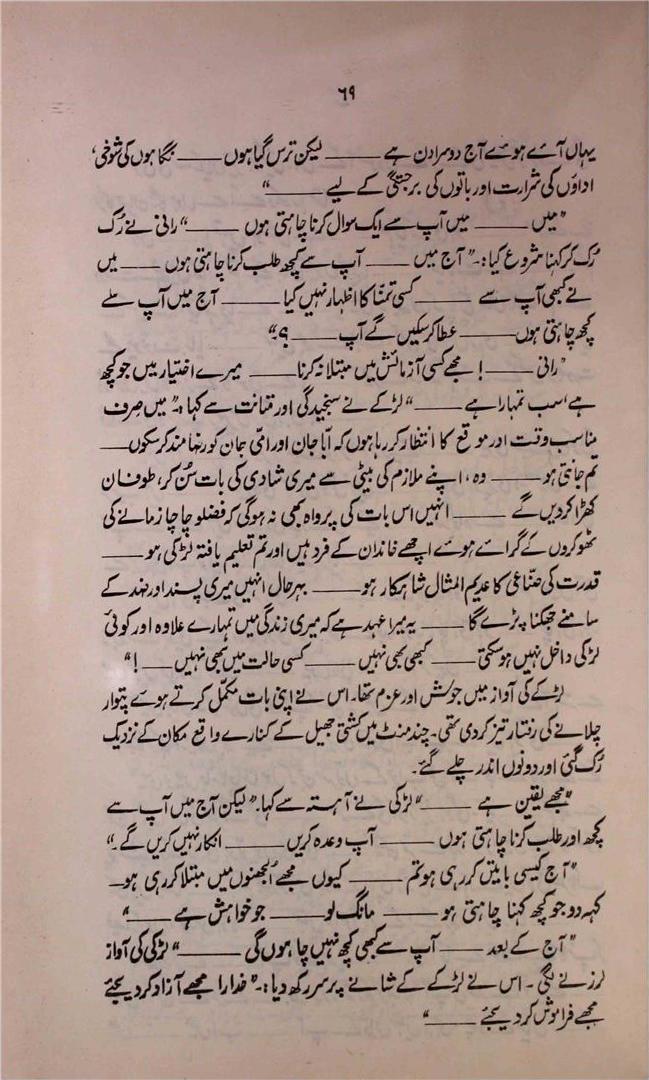 ۶۹
یہاں آئے ہوئے آج دوسرا دن ہے ——— لیکن ترس گیا ہوں ——— نگاہوں کی شوخی،
اداؤں کی شرارت اور باتوں کی برجستگی کے لیے ———"
"میں ——— میں آپ سے ایک سوال کرنا چاہتی ہوں ———" رانی نے رُک
رُک کر کہنا شروع کیا:۔" آج میں ——— آپ سے کچھ طلب کرنا چاہتی ہوں ——— میں
نے کبھی آپ سے ——— کسی تمنّا کا اظہار نہیں کیا ——— آج میں آپ سے
کچھ چاہتی ہوں ——— عطا کر سکیں گے آپ ——— ؟"
"رانی ——— ! مجھے کسی آزمائش میں مبتلا نہ کرنا ——— میرے اختیار میں جو کچھ
ہے سب تمہارا ہے ———" لڑکے نے سنجیدگی اور متانت سے کہا:۔" میں صرف
مناسب وقت اور موقع کا انتظار کر رہا ہوں کہ ابّا جان اور امّی جان کو رضامند کر سکوں ———
تم جانتی ہو ——— وہ، اپنے ملازم کی بیٹی سے میری شادی کی بات سُن کر، طوفان
کھڑا کر دیں گے ——— انہیں اس بات کی پرواہ کبھی نہ ہوگی کہ فضلو چاچا زمانے کی
ٹھوکروں کے گرائے ہوئے اچھے خاندان کے فرد ہیں اور تم تعلیم یافتہ لڑکی ہو ———
قدرت کی صنّاعی کا عدیم المثال شاہکار ہو ——— بہرحال انہیں میری پسند اور ضد کے
سامنے جھکنا پڑے گا ——— یہ میرا عہد ہے کہ میری زندگی میں تمہارے علاوہ اور کوئی
لڑکی داخل نہیں ہو سکتی ——— کبھی بھی نہیں ——— کسی حالت میں بھی نہیں ——— !"
لڑکے کی آواز میں جوش اور عزم تھا۔ اس نے اپنی بات مکمّل کرتے ہوئے پتوار
چلانے کی رفتار تیز کر دی تھی۔ چند منٹ میں کشتی جھیل کے کنارے واقع مکان کے نزدیک
رُک گئی اور دونوں اندر چلے گئے۔
"مجھے یقین ہے ———" لڑکی نے آہستہ سے کہا۔" لیکن آج میں آپ سے
کچھ اور طلب کرنا چاہتی ہوں ——— آپ وعدہ کریں ——— انکار نہیں کریں گے۔"
"آج کیسی باتیں کر رہی ہو تم ——— کیوں مجھے اُلجھنوں میں مبتلا کر رہی ہو ———
کہہ دو جو کچھ کہنا چاہتی ہو ——— مانگ لو ——— جو خواہش ہے ———"
"آج کے بعد ——— آپ سے کبھی کچھ نہیں چاہوں گی ———" لڑکی کی آواز
لرزنے لگی۔ اس نے لڑکے کے شانے پر سر رکھ دیا:۔" خدارا مجھے آزاد کر دیجئے
مجھے فراموش کر دیجئے ———"